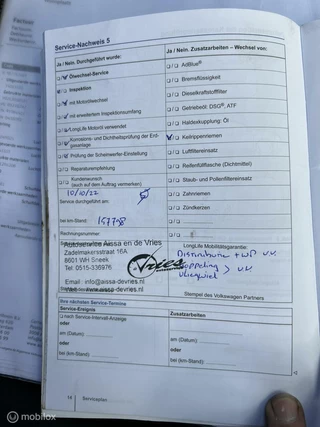 Service-Nachweis 5
Ja / Nein. Durchgeführt wurde:
Ölwechsel-Service
Inspektion
mit Motorölwechsel
mit erweitertem Inspektionsumfang
LongLife Motoröl verwendet
Korrosions- und Dichtheitsprüfung der Erdgasanlage
Prüfung der Scheinwerfer-Einstellung
Reparaturempfehlung
Kundenwunsch
(auch auf dem Auftrag vermerken)
Service durchgeführt am:
10/10/22
bei km-Stand:
157758
Rechnungsnummer:
Autoservice Aissa en de Vries
Zadelmakersstraat 16A
8601 WH Sneek
Tel. 0515-435976
Email info@aissa-devries.nl
Web www.aissa-devries.nl
Vries
Ja / Nein. Zusatzarbeiten – Wechsel von:
AdBlue®
Bremsflüssigkeit
Dieselkraftstofffilter
Getriebeöl: DSG®, ATF
Haldexkupplung: Öl
Keilrippenriemen
Luftfiltereinsatz
Reifenfüllflasche (Dichtmittel)
Staub- und Pollenfiltereinsatz
Zahnriemen
Zündkerzen
LongLife Mobilitätsgarantie:
Distributie + WP v.v.
Koppeling > v.v.
vliegwiel
Stempel des Volkswagen Partners
Ihre nächsten Service-Termine
Service-Ereignis
nach Service-Intervall-Anzeige
oder
am (Datum):
oder
bei (km-Stand):
Zusatzarbeiten:
am (Datum):
oder
bei (km-Stand):
14 Serviceplan
mobilox